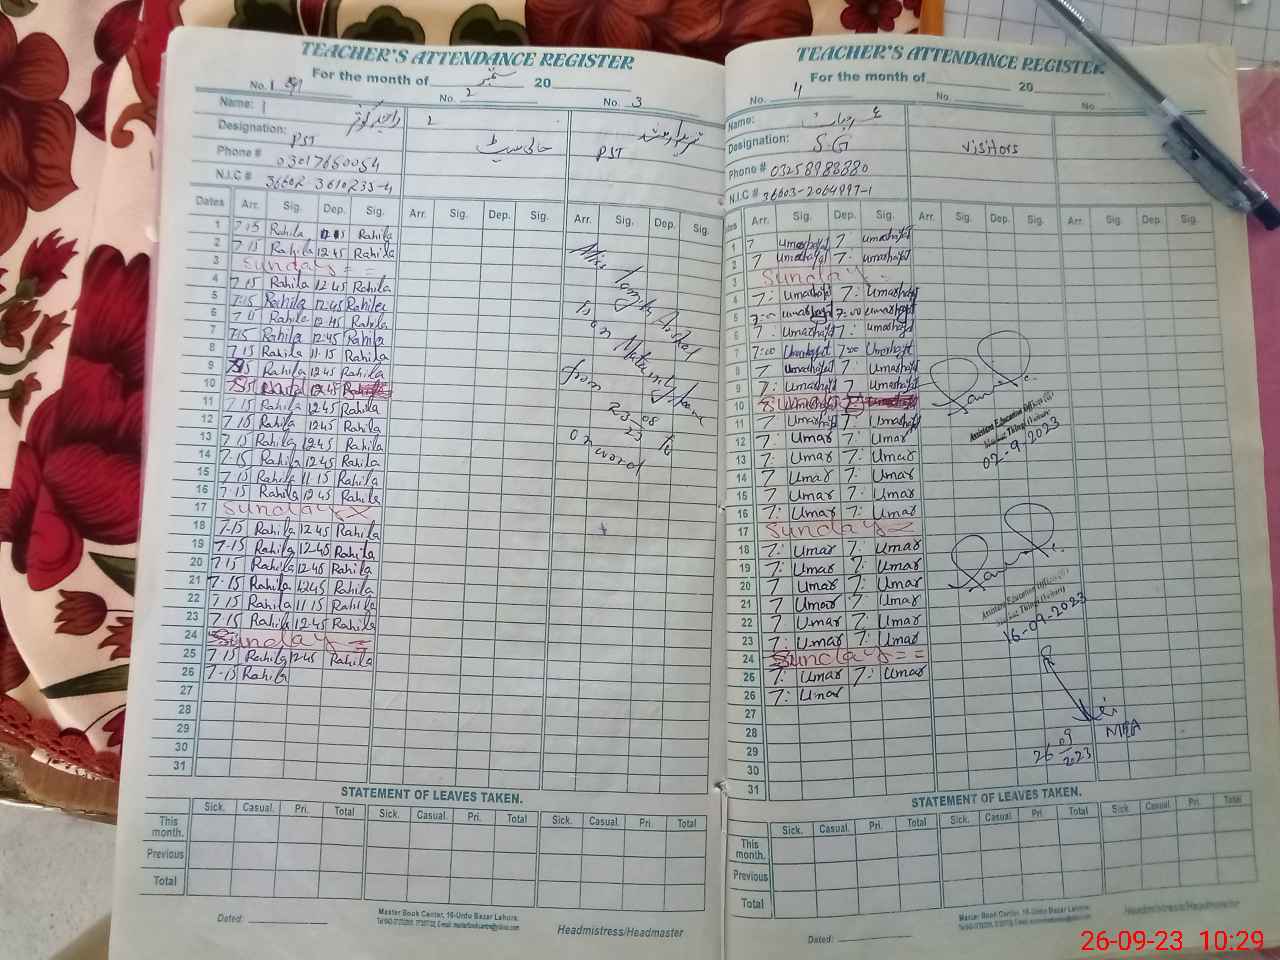 TEACHER'S ATTENDANCE REGISTER
For the month of ستمبر 20
No. 1 No. 2 No. 3
Name: 1 2
Designation: PST خالی سیٹ PST
Phone # 03017650054
N.I.C # 36602 3610235-4
Dates Arr. Sig. Dep. Sig. Arr. Sig. Dep. Sig. Arr. Sig. Dep. Sig.
1 7 15 Rahila Rahila
2 7 15 Rahila 12 45 Rahila
3 Sunday = =
4 7 15 Rahila 12 45 Rahila
5 7-15 Rahila 12 45 Rahila
6 7 15 Rahila 12 45 Rahila
7 7 15 Rahila 12 45 Rahila
8 7 15 Rahila 11-15 Rahila
9 Rahila 12 45 Rahila
10
11 7 15 Rahila 12 45 Rahila
12 7 15 Rahila 12 45 Rahila
13 7 15 Rahila 12 45 Rahila
14 7-15 Rahila 12 45 Rahila
15 7 15 Rahila 11 15 Rahila
16 7-15 Rahila 12 45 Rahila
17 Sunday
18 7-15 Rahila 12 45 Rahila
19 7-15 Rahila 12-45 Rahila
20 7 15 Rahila 12 45 Rahila
21 7-15 Rahila 12 45 Rahila
22 7 15 Rahila 11 15 Rahila
23 7 15 Rahila 12-45 Rahila
24 Sunday =
25 7 15 Rahila 12 45 Rahila
26 7-15 Rahila
27
28
29
30
31
Miss
Is on Maternity leave
from 23/08/23 to
onword
STATEMENT OF LEAVES TAKEN.
Sick. Casual. Pri. Total Sick. Casual. Pri. Total Sick. Casual. Pri. Total
This month.
Previous
Total
Dated:
Master Book Center, 16-Urdu Bazar Lahore.
Headmistress/Headmaster
TEACHER'S ATTENDANCE REGISTER
For the month of 20
No. 4 No. No.
Name: عمر حیات
Designation: S.G Visitors
Phone # 03258988880
N.I.C # 36603-2064997-1
Dates Arr. Sig. Dep. Sig. Arr. Sig. Dep. Sig. Arr. Sig. Dep. Sig.
1 7 Umarhayat 7: Umarhayat
2 7 Umarhayat 7: Umarhayat
3 Sunday
4 7: Umarhayat 7: Umarhayat
5 7:00 Umarhayat 7:00 Umarhayat
6 7: Umarhayat 7: Umarhayat
7 7:00 Umarhayat 7:00 Umarhayat
8 7 Umarhayat 7 Umarhayat
9 7: Umarhayat 7 Umarhayat
10
11 7 Umarhayat 7: Umarhayat
12 7: Umar 7: Umar
13 7: Umar 7: Umar
14 7 Umar 7: Umar
15 7 Umar 7: Umar
16 7: Umar 7: Umar
17 Sunday =
18 7: Umar 7: Umar
19 7: Umar 7: Umar
20 7 Umar 7: Umar
21 7: Umar 7: Umar
22 7 Umar 7: Umar
23 7: Umar 7: Umar
24 Sunday = =
25 7: Umar 7: Umar
26 7: Umar
27
28
29
30
31
Assistant Education Officer
02-9-2023
Assistant Education Officer
16-09-2023
MEA
26/09/2023
STATEMENT OF LEAVES TAKEN.
Sick. Casual. Pri. Total Sick. Casual. Pri. Total Sick. Casual. Pri. Total
This month.
Previous
Total
Dated:
Master Book Center, 16-Urdu Bazar Lahore.
Headmistress/Headmaster
26-09-23 10:29